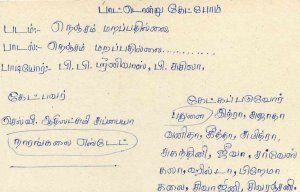 பாட்டொன்று கேட்போம்
படம்:- நெஞ்சம் மறப்பதில்லை
பாடல்:- நெஞ்சம் மறப்பதில்லை.........
பாடியோர்:- பி. பி. ஸ்ரீனிவாஸ், பி. சுசிலா.
கேட்பவர்
செல்வி. ஆதிலட்சுமி சுப்பையா
நாரங்கலை எஸ்டேட்
கேட்கப்படுவோர்
சித்ரா, சுஜாதா
வனிதா, கீதா, சுமித்ரா,
சுகந்தினி, ஜீவா,
கலா,
கலை, சிவாஜினி, சிவரஞ்சனி